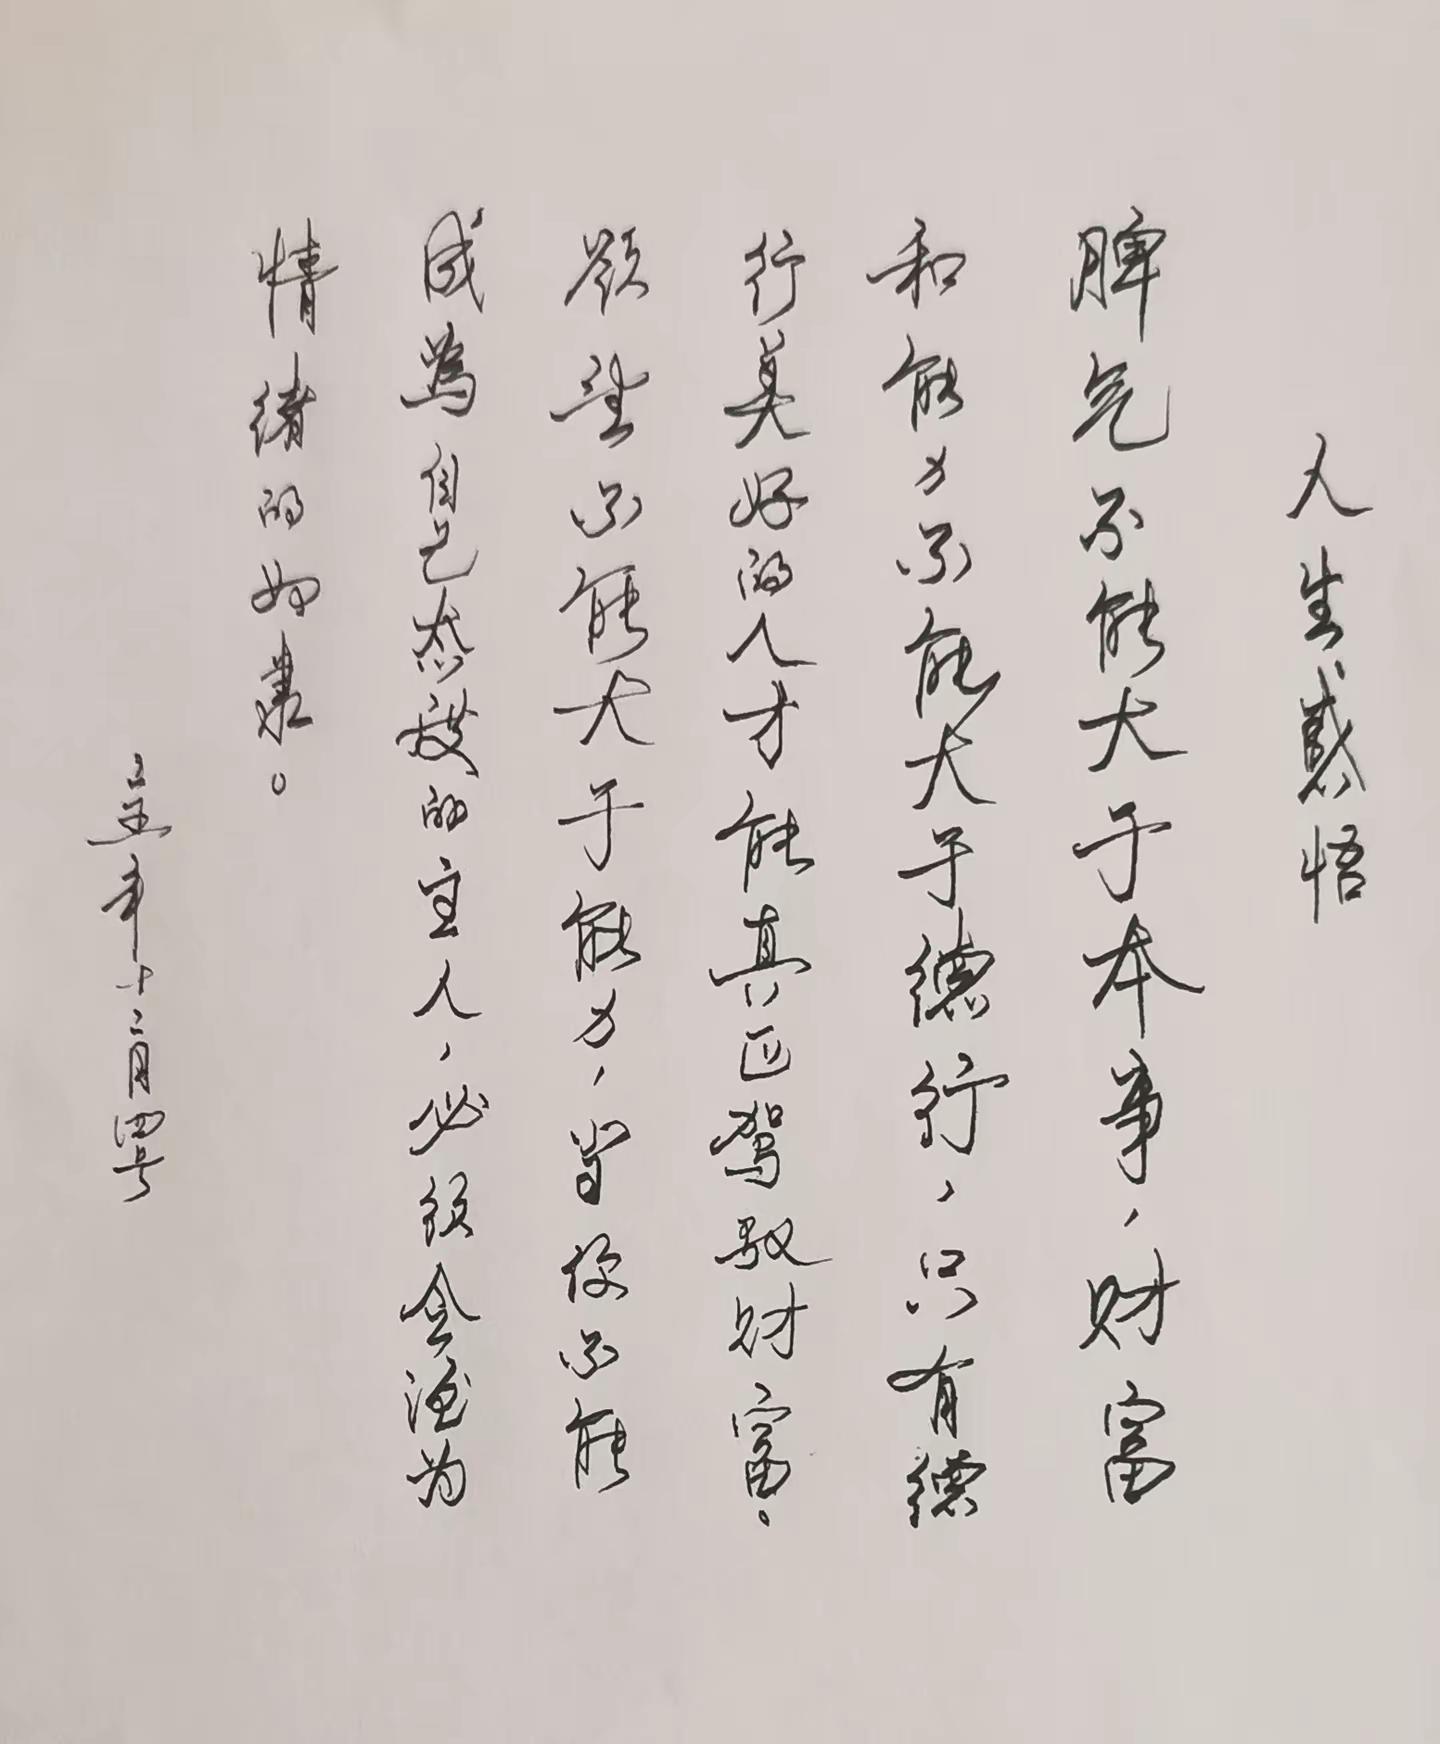 人生感悟
脾气不能大于本事，财富
和能力不能大于德行，只有德
行美好的人才能真正驾驭财富。
欲望不能大于能力，当你不能
成為自己态度的主人，必须会沦为
情绪的奴隶。
年十二月四号